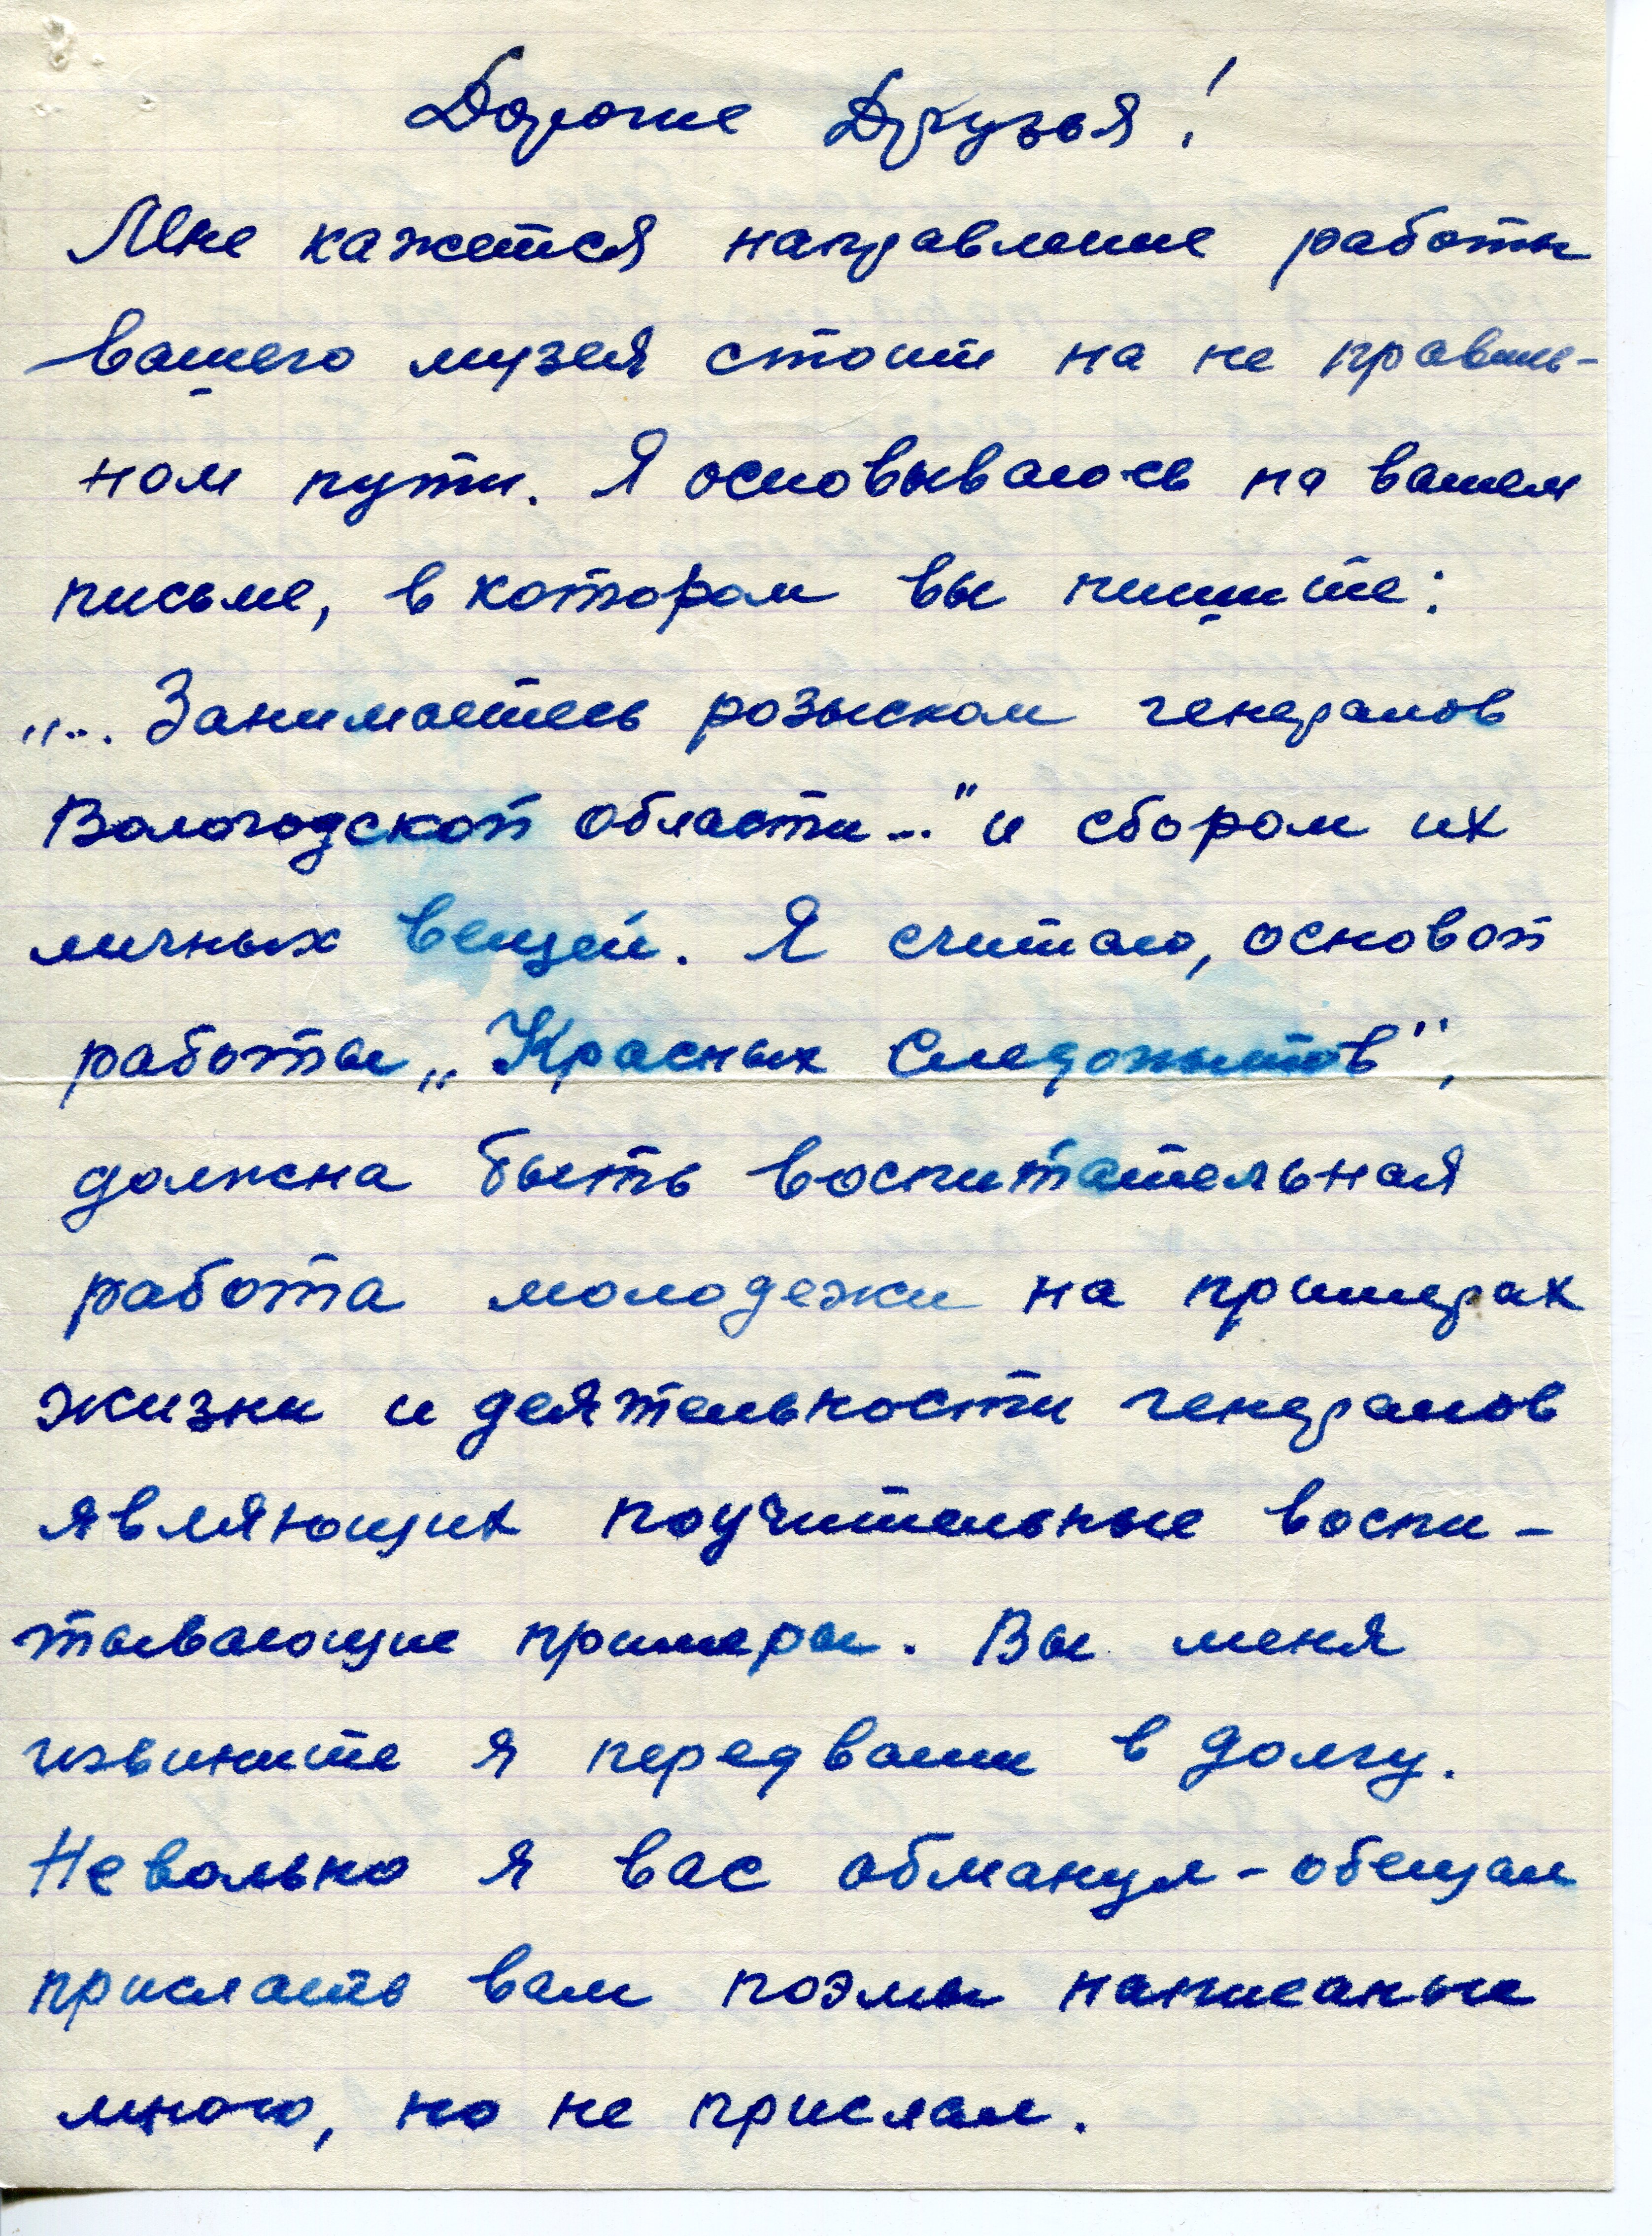 Дорогие Друзья!
Мне кажется направление работы
вашего музея стоит на не правиль-
ном пути. Я основываюсь на вашем
письме, в котором вы пишите:
„... Занимаетесь розыском генералов
Вологодской области..." и сбором их
личных вещей. Я считаю, основой
работы „Красных Следопытов",
должна быть воспитательная
работа молодежи на примерах
жизни и деятельности генералов
являющих поучительные воспи-
тывающие примеры. Вы меня
извините я перед вами в долгу.
Невольно я вас обманул - обещал
прислать вам поэмы написаные
мною, но не прислал.